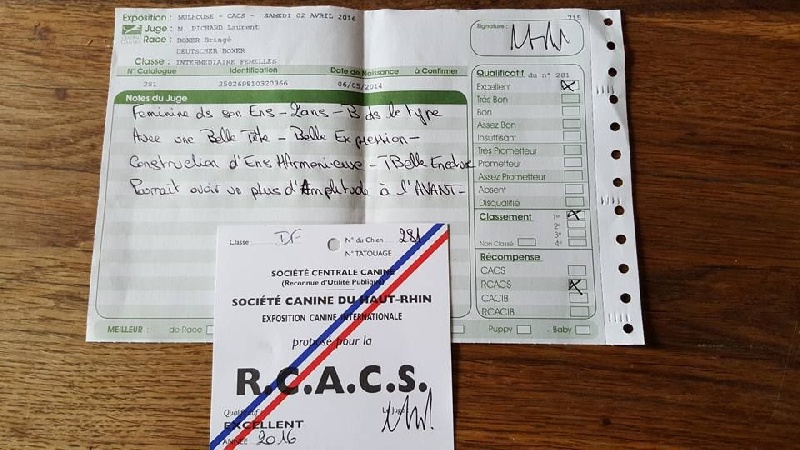 Exposition : MULHOUSE - CACS - SAMEDI 02 AVRIL 2016
Juge : M. PICHARD Laurent
Race : BOXER Bringé
DEUTSCHER BOXER
Classe : INTERMEDIAIRE FEMELLES
Signature :
N° Catalogue Identification Date de Naissance à Confirmer
281
Notes du Juge
Feminine ds son Ens - 2ans - B ds le type
Avec une Belle Tête - Belle Expression -
Construction d'Ens HArmonieuse - TBelle Encolure
Pourrait avoir un plus d'Amplitude à l'AVANT -
Qualificatif du n° 281
Excellent
Très Bon
Bon
Assez Bon
Insuffisant
Très Prometteur
Prometteur
Assez Prometteur
Absent
Disqualifié
Classement 1er
2e
3e
Non Classé 4e
Récompense
CACS
RCACS
CACIB
RCACIB
MEILLEUR : de Race Puppy Baby
Classe : IF N° du Chien 281
N° TATOUAGE
SOCIÉTÉ CENTRALE CANINE
(Reconnue d'Utilité Publique)
SOCIÉTÉ CANINE DU HAUT-RHIN
EXPOSITION CANINE INTERNATIONALE
proposé pour la
R.C.A.C.S.
Qualificatif Le Juge
EXCELLENT
ANNÉE 2016